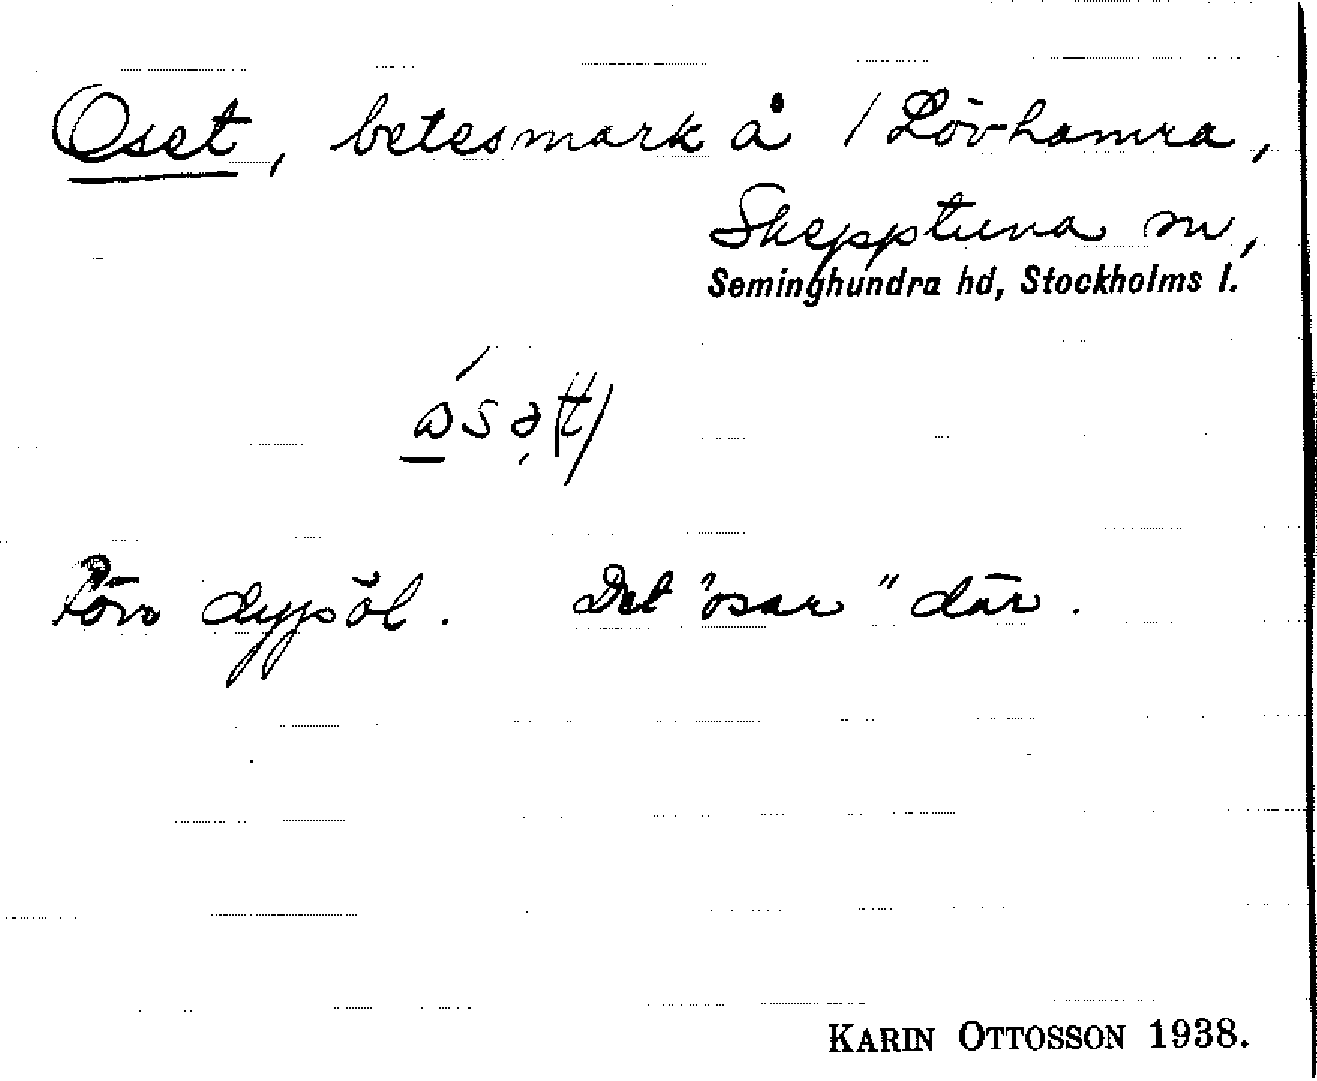 Oset, betesmark å / Lövhamra,
Skepptuna sn,
Seminghundra hd, Stockholms l.
Förr dypöl. Det "osar" där.
KARIN OTTOSSON 1938.